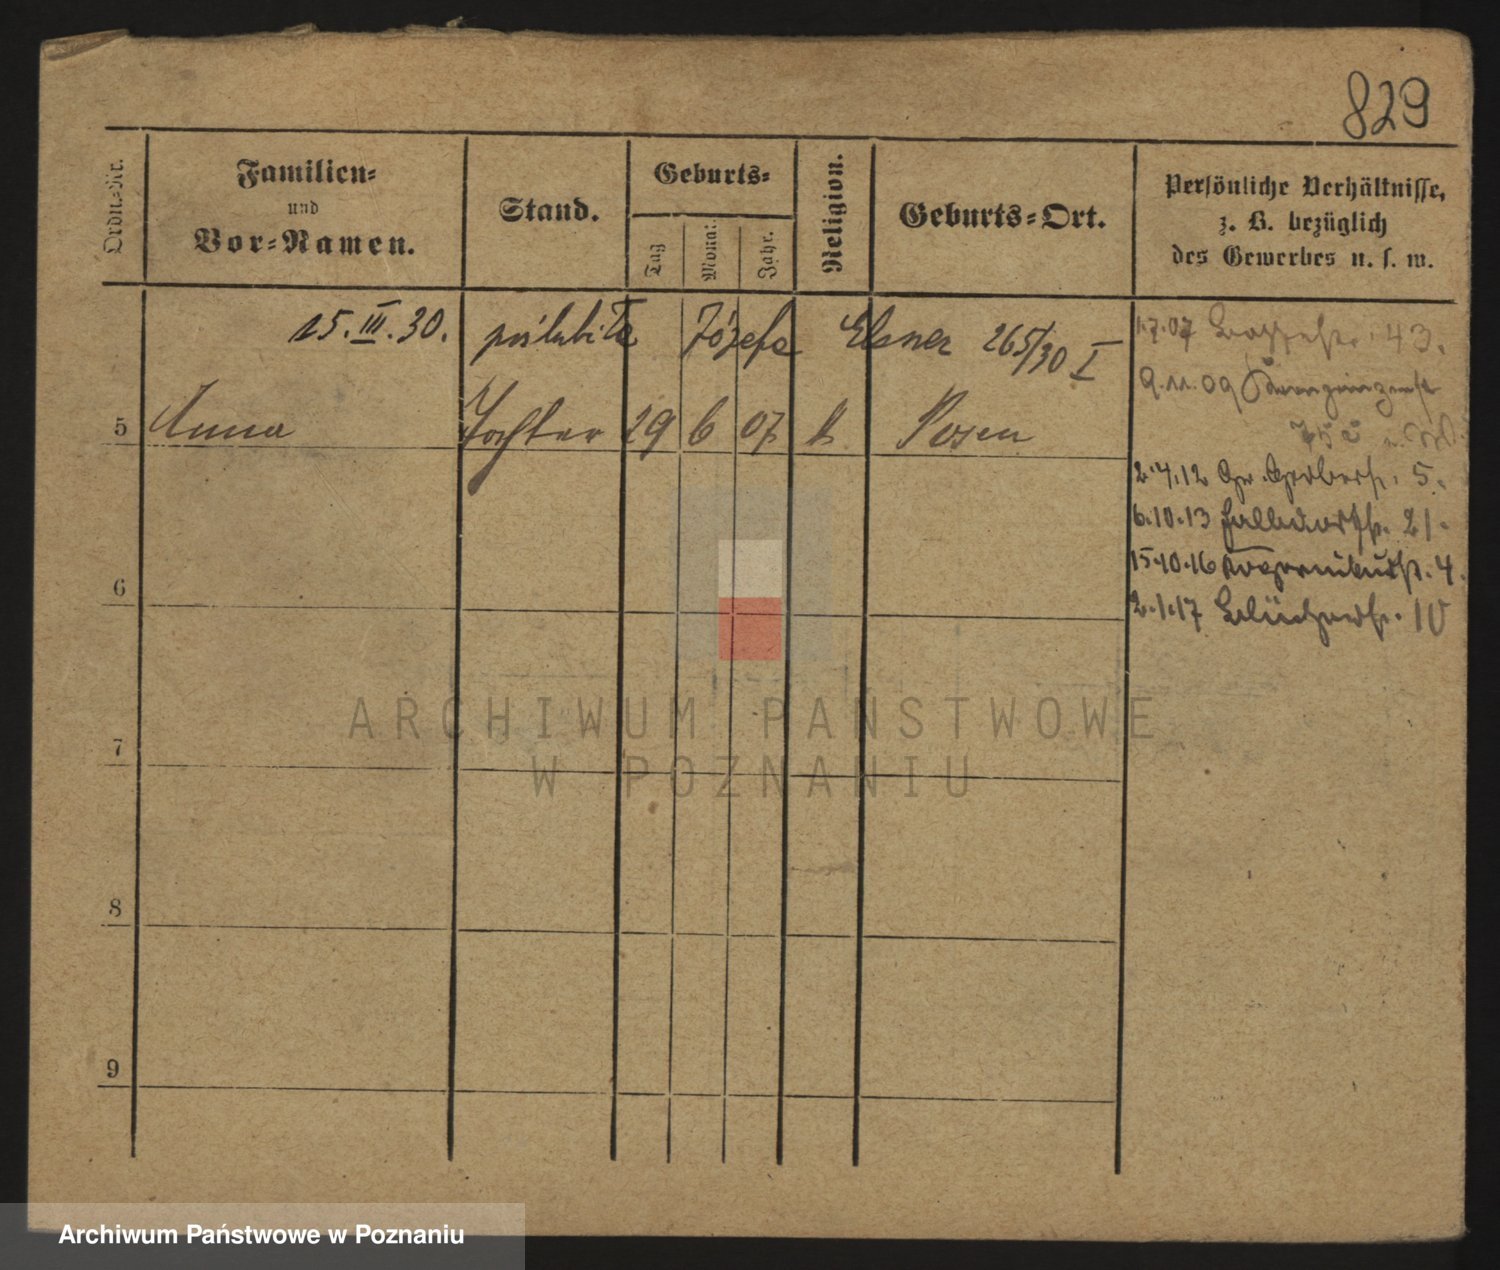 829
Ordn.-Nr.
Familien-
und
Vor-Namen.
Stand.
Geburts-
Tag
Monat
Jahr.
Religion.
Geburts-Ort.
Persönliche Verhältnisse,
z. B. bezüglich
des Gewerbes u. s. w.
15.III.30. poślubiła Józefa Elsner 265/30 I
5 Anna Tochter 29 6 07 k Posen
1.7.07 43.
9.11.09
2.4.12 Gr. Gerberstr. 5.
6.10.13 Halbdorfstr. 21.
15.10.16 4.
2.1.17 Blücherstr. 10
6
7
8
9
ARCHIWUM PAŃSTWOWE
W POZNANIU
Archiwum Państwowe w Poznaniu